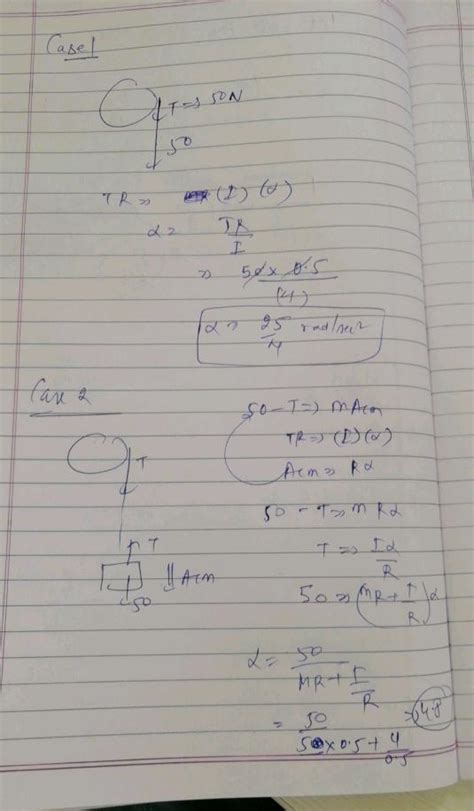 Case 1
T => 50N
50
TR => (I) (α)
α = TR/I
=> 50 x 0.5/(4)
α => 25/4 rad/sec²
Case 2
50 - T => MAcm
T
TR => (I) (α)
Acm => Rα
50 - T => MRα
T
T => Iα/R
Acm
50
50 => (MR + I/R) α
α = 50/(MR + I/R)
= 50/(5 x 0.5 + 4/0.5) => 4.8